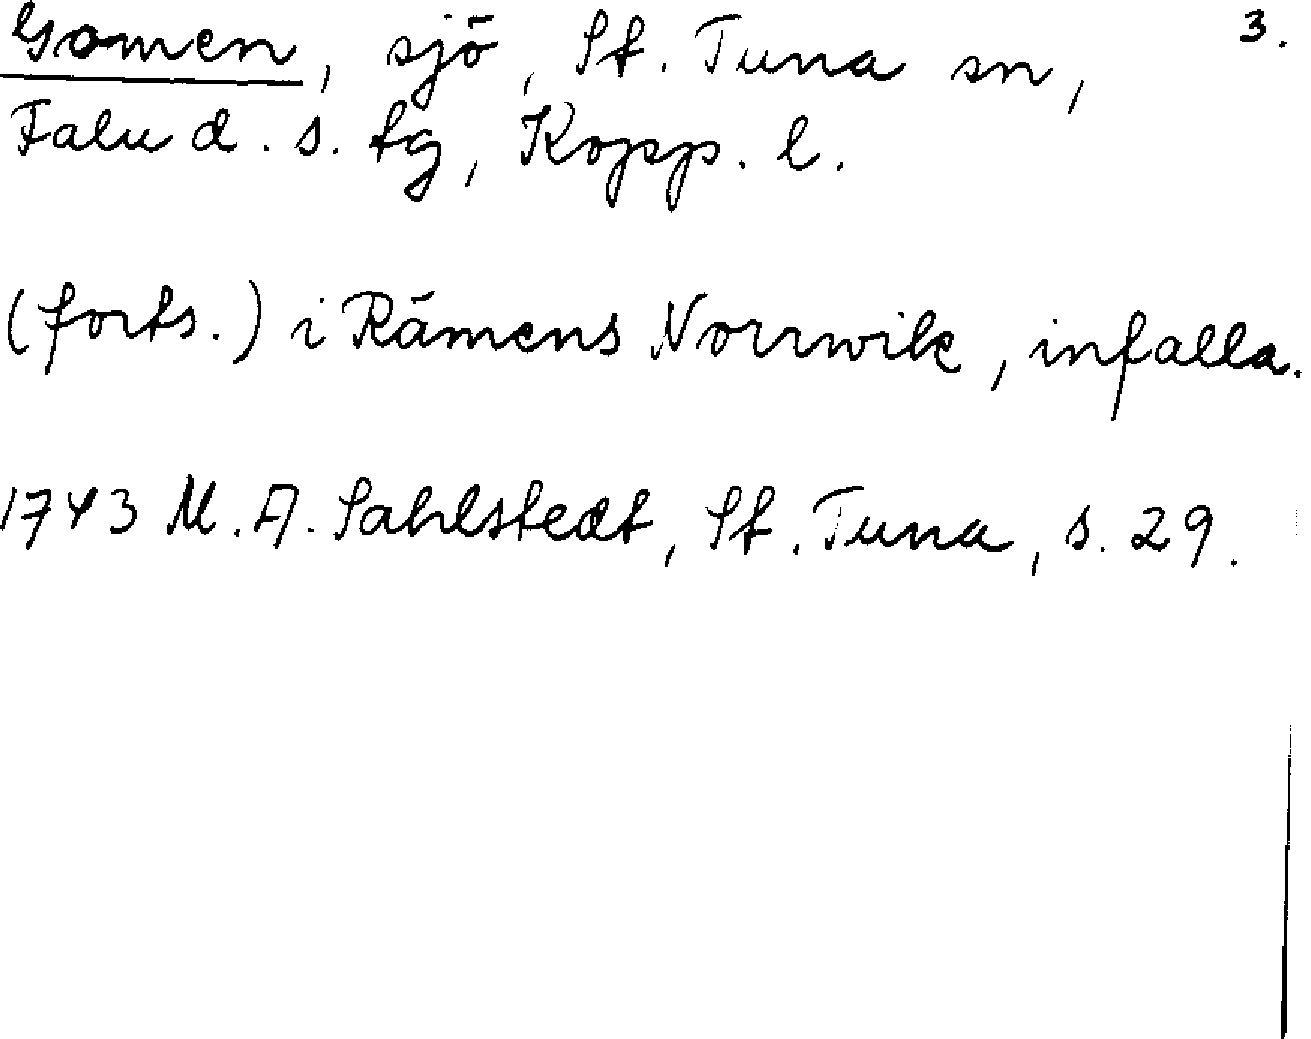 Gomen, sjö, St. Tuna sn, 3.
Falu d. s. tg, Kopp. l.
(forts.) i Rämens Norrwik, infalla.
1743 M. A. Sahlstedt, St. Tuna, s. 29.